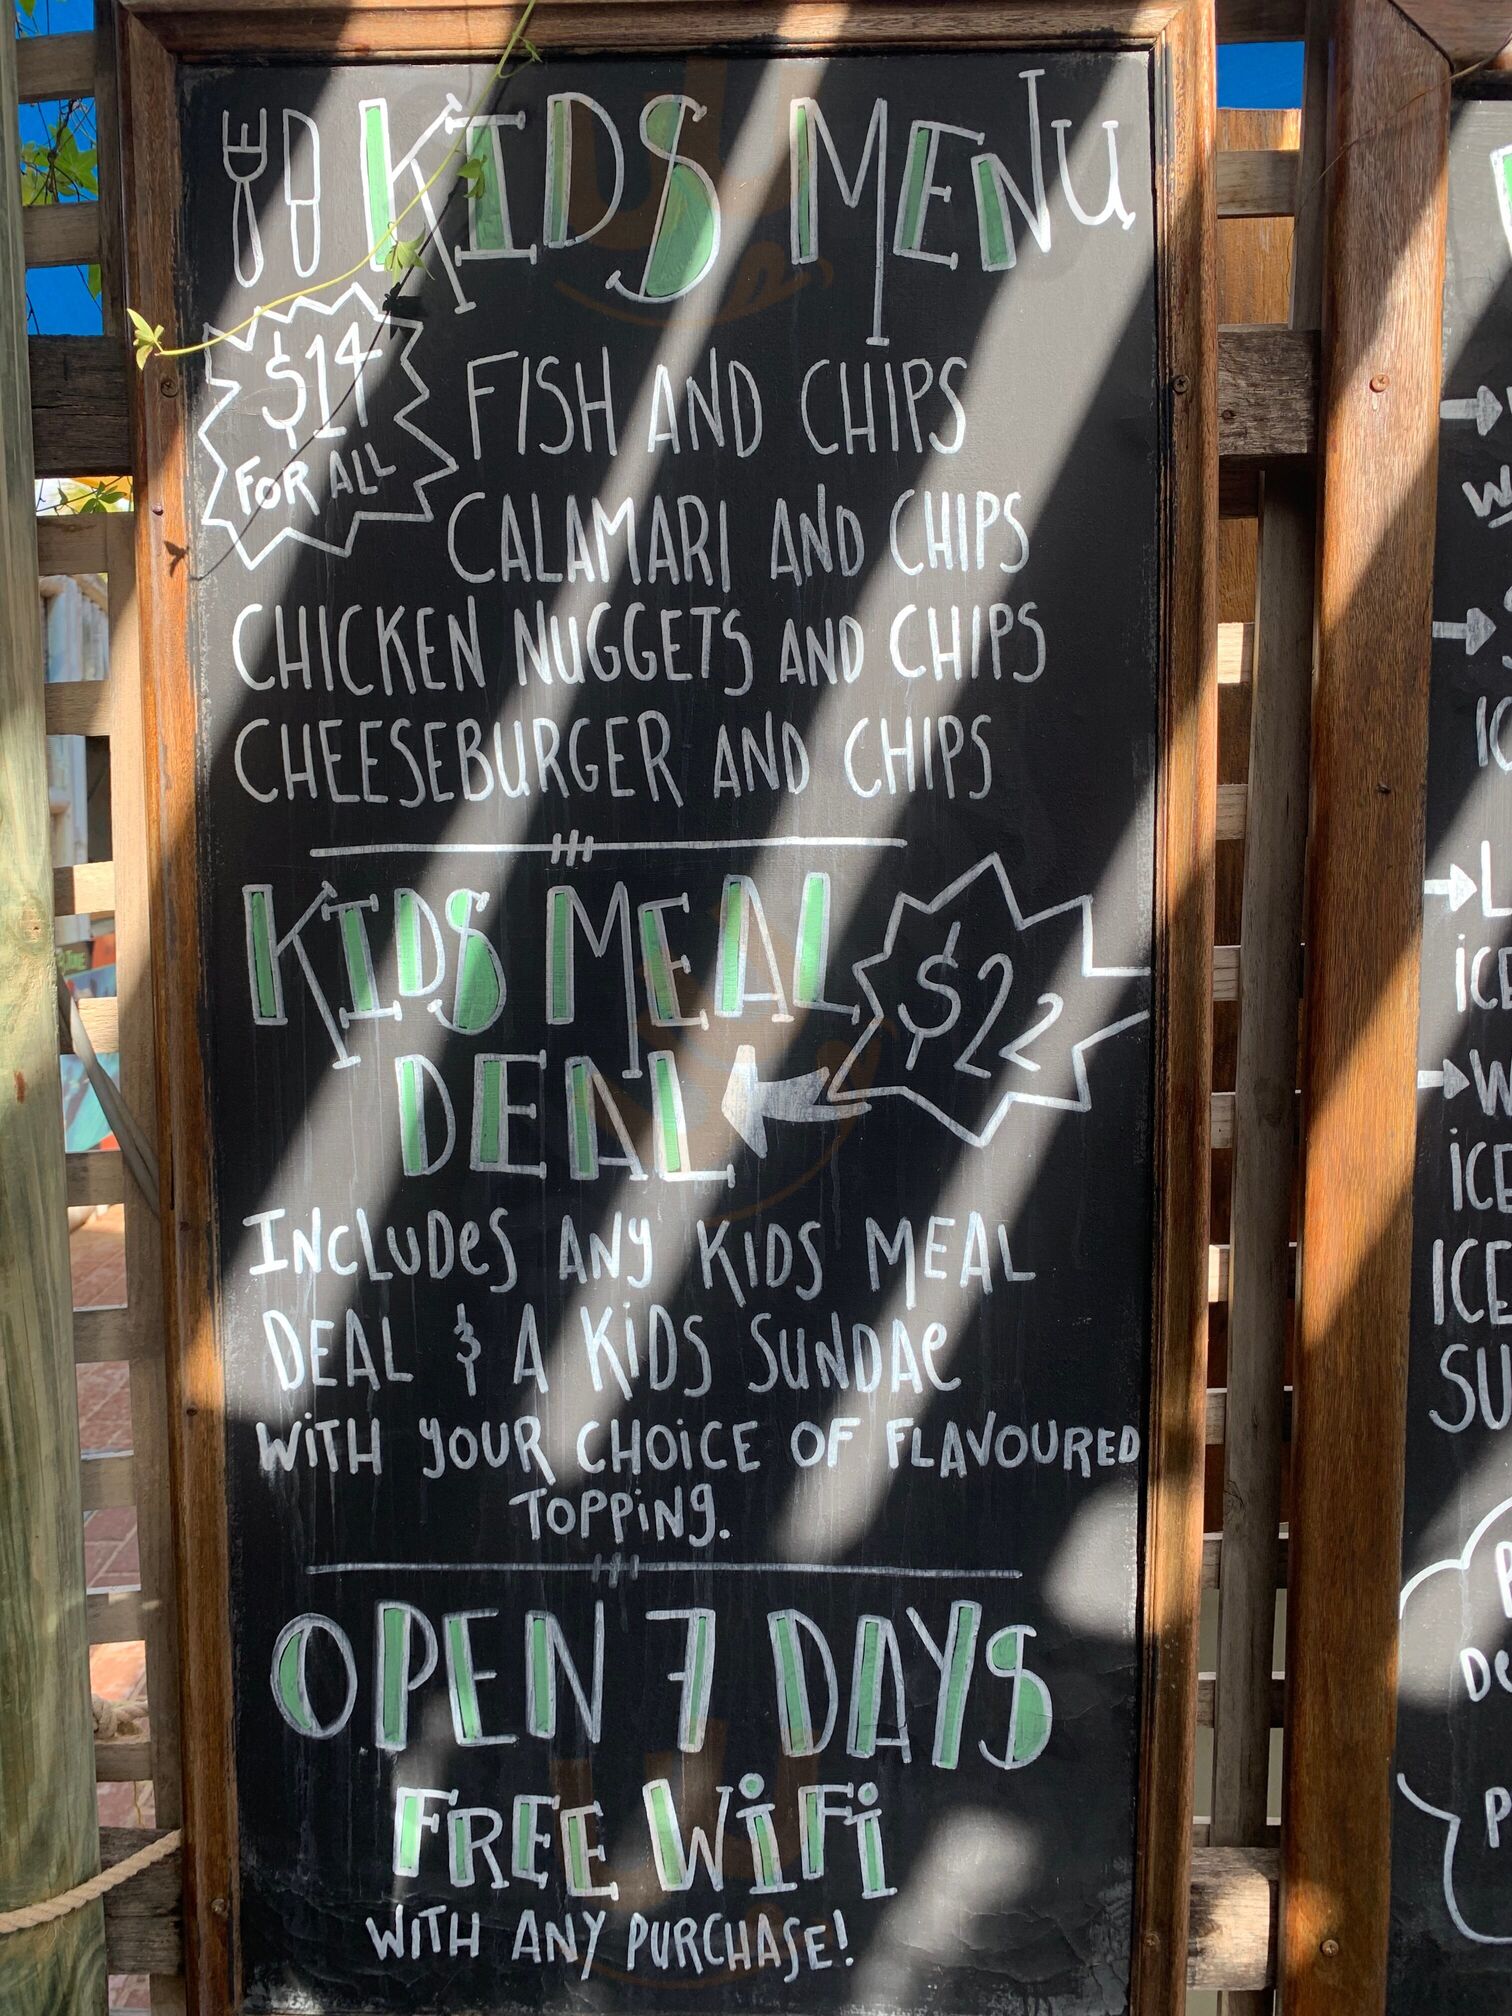 KIDS MENU
$14
FOR ALL
FISH AND CHIPS
CALAMARI AND CHIPS
CHICKEN NUGGETS AND CHIPS
CHEESEBURGER AND CHIPS
KIDS MEAL
DEAL
$22
INCLUDES ANY KIDS MEAL
DEAL & A KIDS SUNDAE
WITH YOUR CHOICE OF FLAVOURED
TOPPING.
OPEN 7 DAYS
FREE WIFI
WITH ANY PURCHASE!